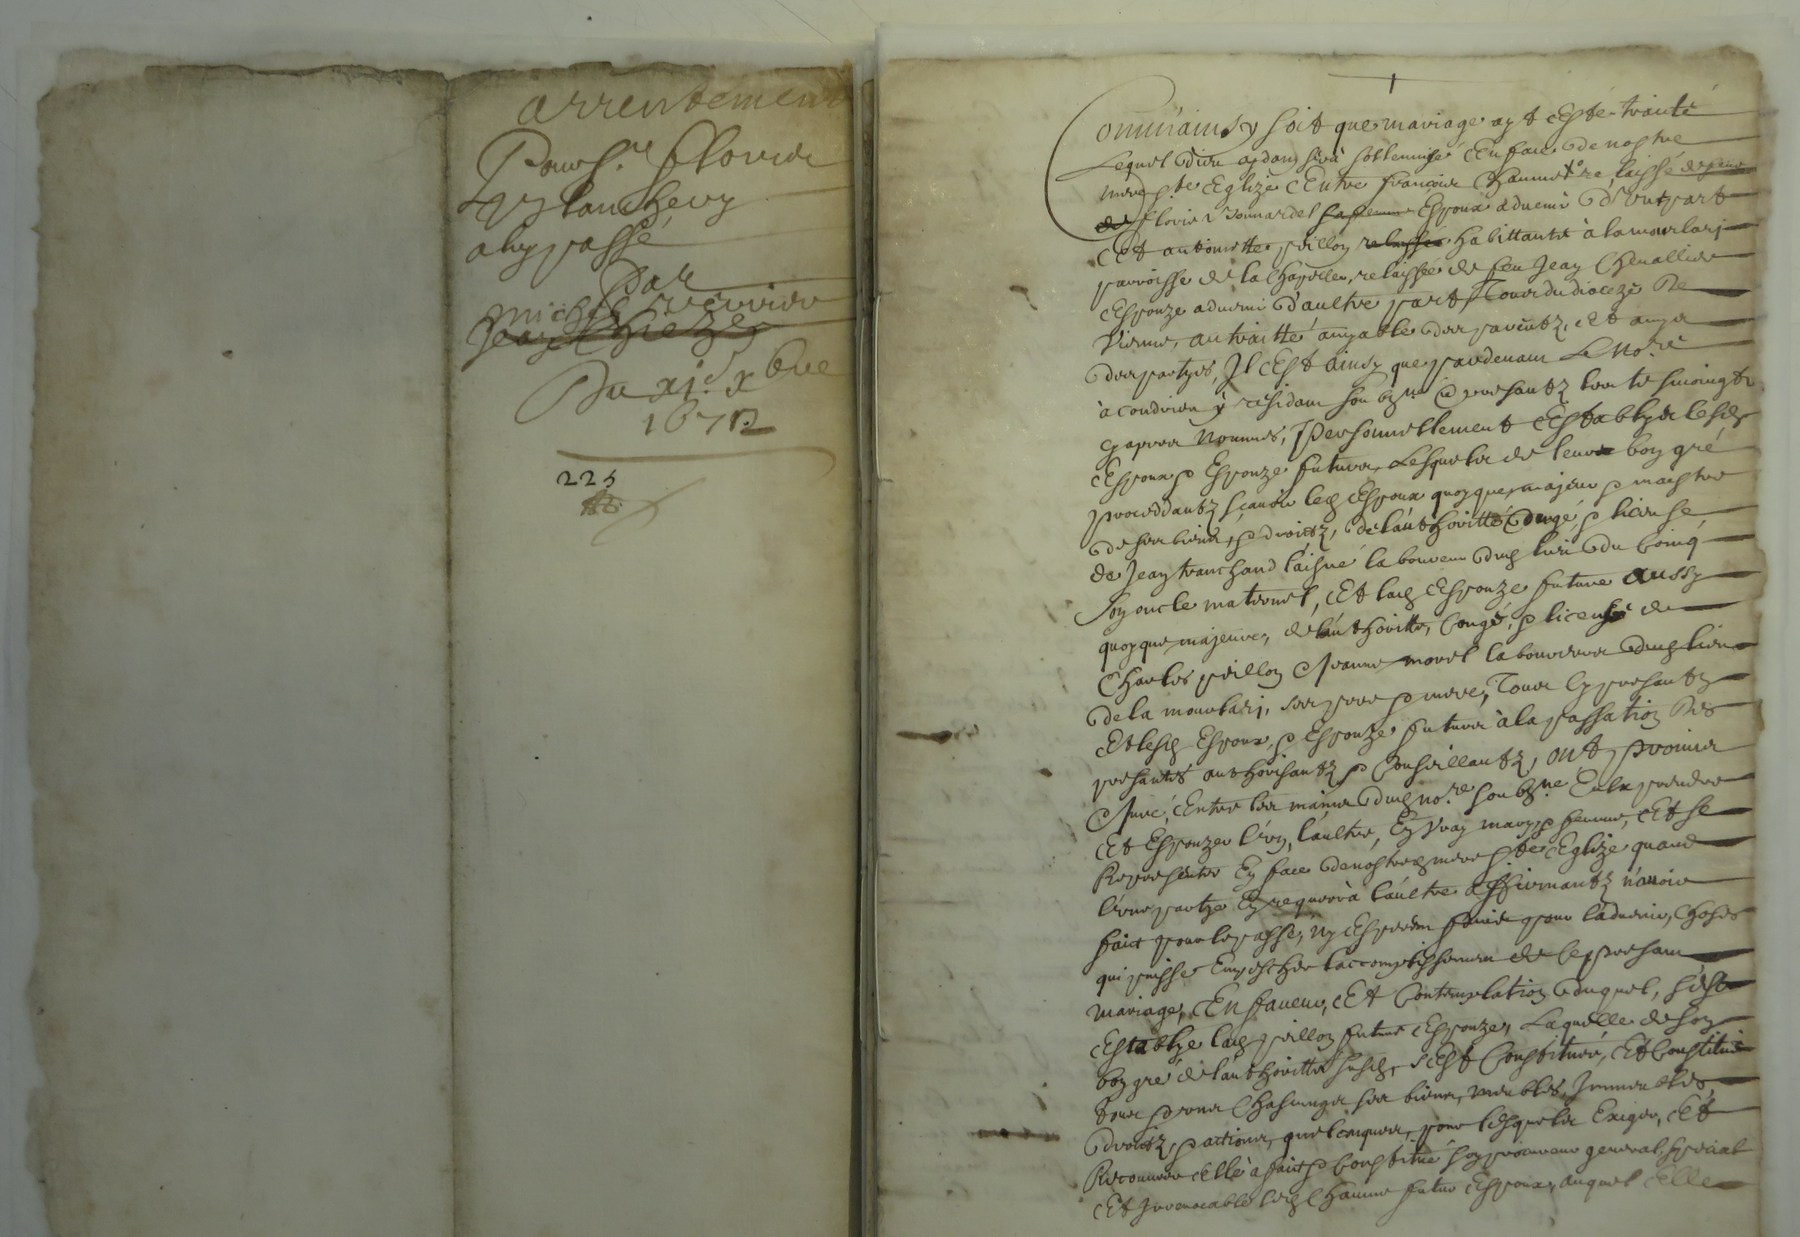 arrentement
Pour Sr. Florier
Planchery
a luy passé
Par
Michel
Jean Chieze
Du xi.e xbre
1672
225
Comm'ainsy soit que mariage ayt esté traitté
Lequel Dieu aydant sera sollemnisé en face de nostre
mere ste Eglize Entre françois Chaume relaissé
de florie Bonnardel sa femme Espoux aduenir d'Une part
Et anthoinette peillon relaissée habittante à la mourlari
parroisse de la Chapelle, relaissée de feu Jean Cheuallier
Espouze aduenir d'aultre part Tous du dioceze de
Vienne, au traitté amyable des parentz, et amys
des partyes, Il Est ainsy que pardeuant Le No.re
à condrieu y residant soubz.né & presantz les tesmoingtz
cy apres Nommés, Personnellement Establys lesd
Espoux & Espouze futurs, Lesquels de leur bon gré
proceddantz sçauoir led Espoux quoyque majeur & maistre
de ses biens, & droictz, de l'authoritté Congé, & license,
de Jean tranchand l'aisné laboureur dud lieu du Coing
son oncle maternel, Et lad Espouze future aussy
quoyque majeure, de l'authoritté, Congé, & license de
Charles peillon & Jeanne morel laboureurs dud lieu
de la mourlari, ses pere & mere, Tous Cy presantz
Et lesd Espoux, & Espouze futurs à la passation des
presantes authorisantz & Conseillantz, ont promis
& Juré, Entre les mains dud no.re soubz.né Eulx prendre
Et Espouzer l'vn, l'aultre, En Vray mary & femme, Et se
Representer En face de nostre mere ste Eglize quand
l'vne partye En requerrà l'aultre affirmantz n'auoir
faict pour le passé, ny Esperer faire pour l'aduenir, Choses
qui puisse Empescher l'accomplissement de Ce presant
mariage, En faueur, Et Contemplation duquel, s'est
Establye lad peillon future Espouze, Laquelle de son
bon gré de l'authoritté susd, s'Est Constituée, Et Constitue
tous & vns Chascungs ses biens, meubles, Immeubles,
droictz, & actions, quelconques, pour lesquels Exiger, Et
Recouurer Elle à faict & Constitué son procureur general, special
Et Irreuocable led Chaume futur Espoux, auquel Elle